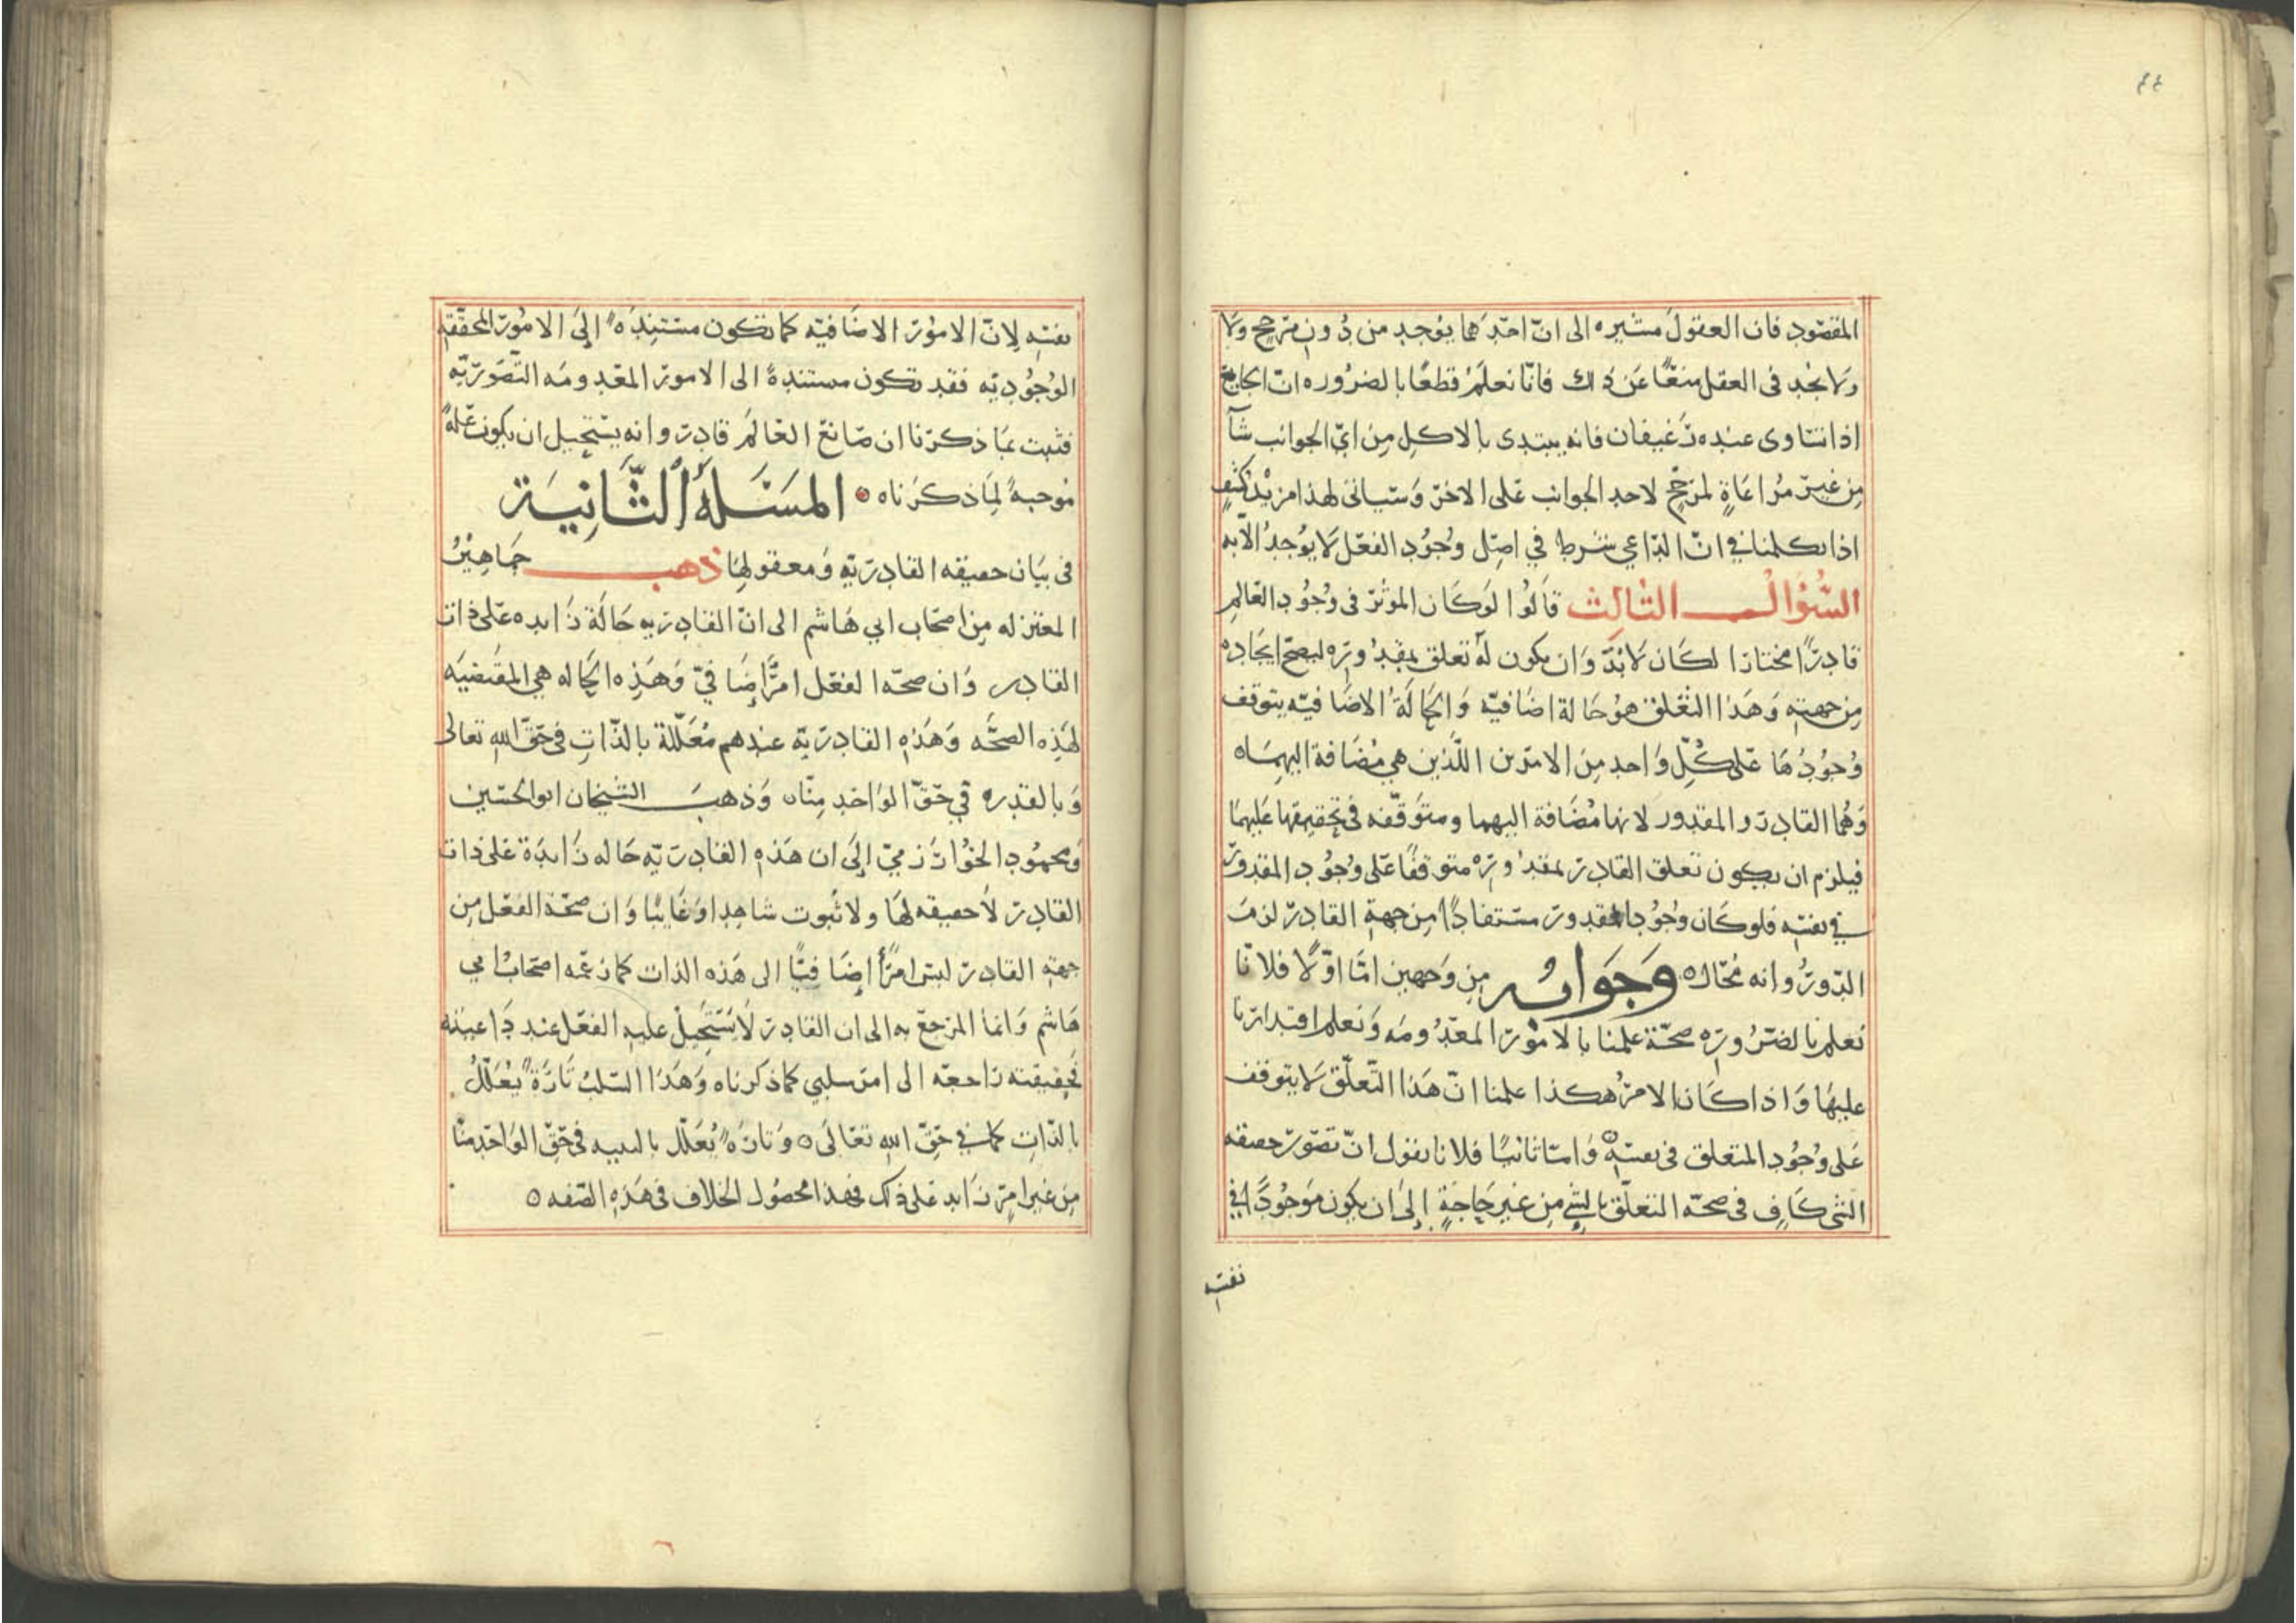 ٤٤
المقصود فان العقول مشيره الى انّ احدهما يوجد من دون مرجح ولا
ولا نجد فى العقل منعًا عن ذلك فانّا نعلم قطعًا بالضروره انّ الجايع
اذا تساوى عنده رغيفان فانه يبتدى بالاكل من ايّ الجوانب شآ
من غير مراعاةٍ لمرجّح لاحد الجوانب على الاخر وسياتى لهذا مزيد كشفٍ
اذا تكلمنا في انّ الداعي شرط في اصل وجود الفعل لا يوجد الّا به
السُّؤال الثالث قالوا لو كان الموثر فى وجود العالم
قادرًا مختارا لكان لا بدّ وان يكون له تعلق بمقدوره ليصحّ ايجاده
من جهته وهذا التعلق هو حالة اضافيّه والحالة الاضافيّه يتوقف
وجودها على كلّ واحد من الامرين اللّذين هي مضافة اليهماه
وهما القادر والمقدور لانها مضافة اليهما ومتوقّفه فى تحقيقها عليهما
فيلزم ان يكون تعلق القادر بمقدوره متوقفًا على وجود المقدور
في نفسه فلو كان وجود المقدور مستفادًا من جهة القادر لزم
الدّور وانه محال ه وجوابه من وجهين امّا اوّلًا فلانّا
نعلم بالضّروره صحّة علمنا بالامور المعدومه ونعلم اقتدارنا
عليها واذا كان الامر هكذا علمنا انّ هذا التّعلّق لا يتوقف
على وجود المتعلق فى نفسه ه وامّا ثانيًا فلانا نقول انّ تصوّر حقيقه
الشى كافٍ فى صحّه التعلّق بالشئ من غير حاجةٍ إلى ان يكون موجودًا في
نفسه
نفسه لانّ الامور الاضافيّه كما تكون مستندةً إلى الامور المحقّقه
الوجوديّه فقد تكون مستندةً الى الامور المعدومه التّصوّريّه
فثبت بما ذكرنا ان صانع العالم قادر وانه يستحيل ان يكون علّةً
موجبةً لما ذكرناه ه المَسْئلةُ الثَّانِيَة
فى بيان حقيقه القادريّه ومعقولها ذهب جماهيرُ
المعتزله من اصحاب ابي هاشم الى انّ القادريه حالة زايده على ذات
القادر وان صحّه الفعل امرٌ إضافيّ وهذه الحاله هي المقتضيه
لهذه الصحّه وهذه القادريّه عندهم معلّلة بالذّات فى حقّ الله تعالى
وبالقدره في حقّ الواحد منّا ه وذهب الشيخان ابو الحسين
ومحمود الخوارزميّ إلى ان هذه القادريّه حاله زايدة على ذات
القادر لا حقيقه لها ولا ثبوت شاهدا وغايبًا وان صحّة الفعل من
جهة القادر ليس امرًا إضافيًّا الى هذه الذات كما زعمه اصحاب ابي
هاشم وانما المرجع به الى ان القادر لا يستحيل عليه الفعل عند داعيته
فحقيقته راجعه الى امر سلبي كما ذكرناه وهذا السّلب تارةً يُعلّلُ
بالذّات كما في حقّ الله تعالى ه وتارةً يُعلّل بالبنيه فى حقّ الواحد منّا
من غير امر زايد على ذلك فهذا محصول الخلاف فى هذه الصّفه ه